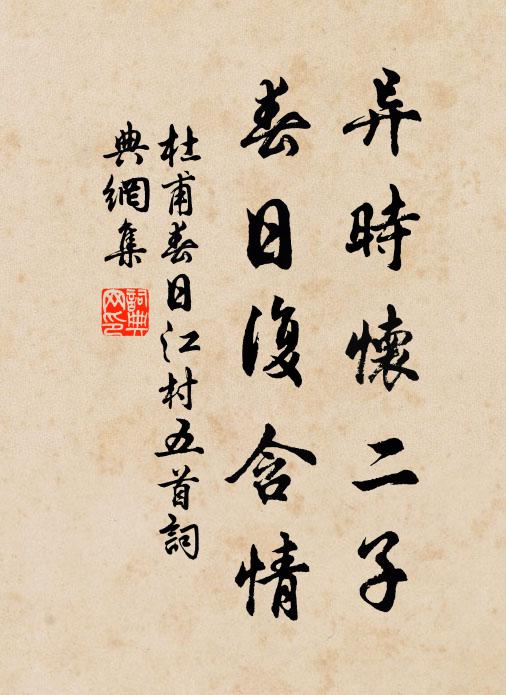 异時懷二子
春日復含情
杜甫春日江村五首詞
典網集
詞典
网印